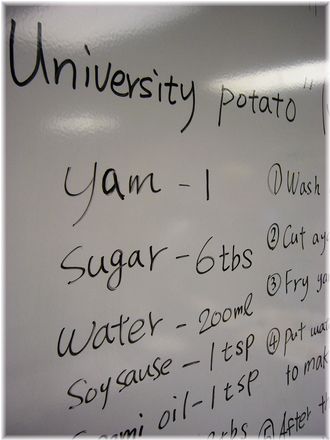 University potato"
Yam - 1
Sugar - 6tbs
Water - 200ml
Soysause - 1tsp
oil - 1tsp
① Wash
② Cut
③ Fry
④ Put
to mak
⑤ After